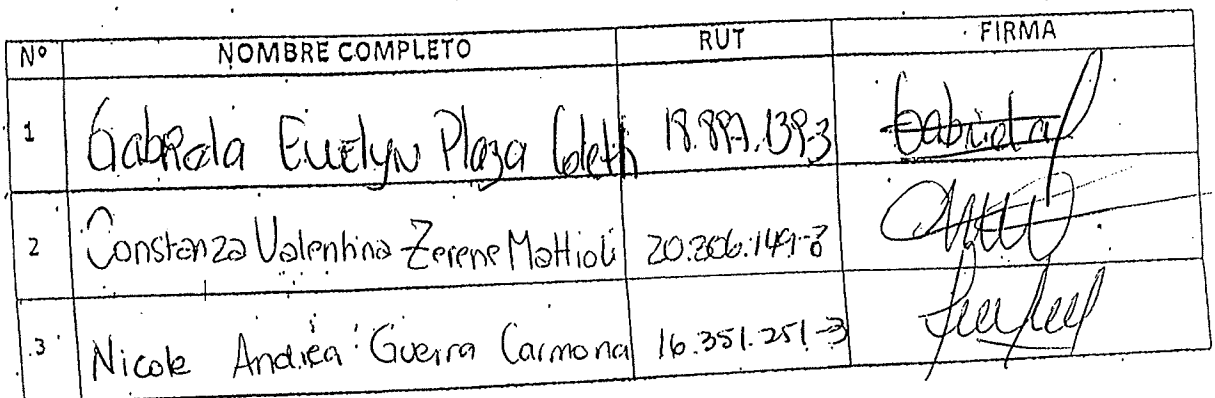 Nº NOMBRE COMPLETO RUT FIRMA
1 Gabriela Evelyn Plaza 18.887.139-3 Gabriela
2 Constanza Valentina Zerene Mattioli 20.206.149-
3 Nicole Andrea Guerra Carmona 16.351.251-3